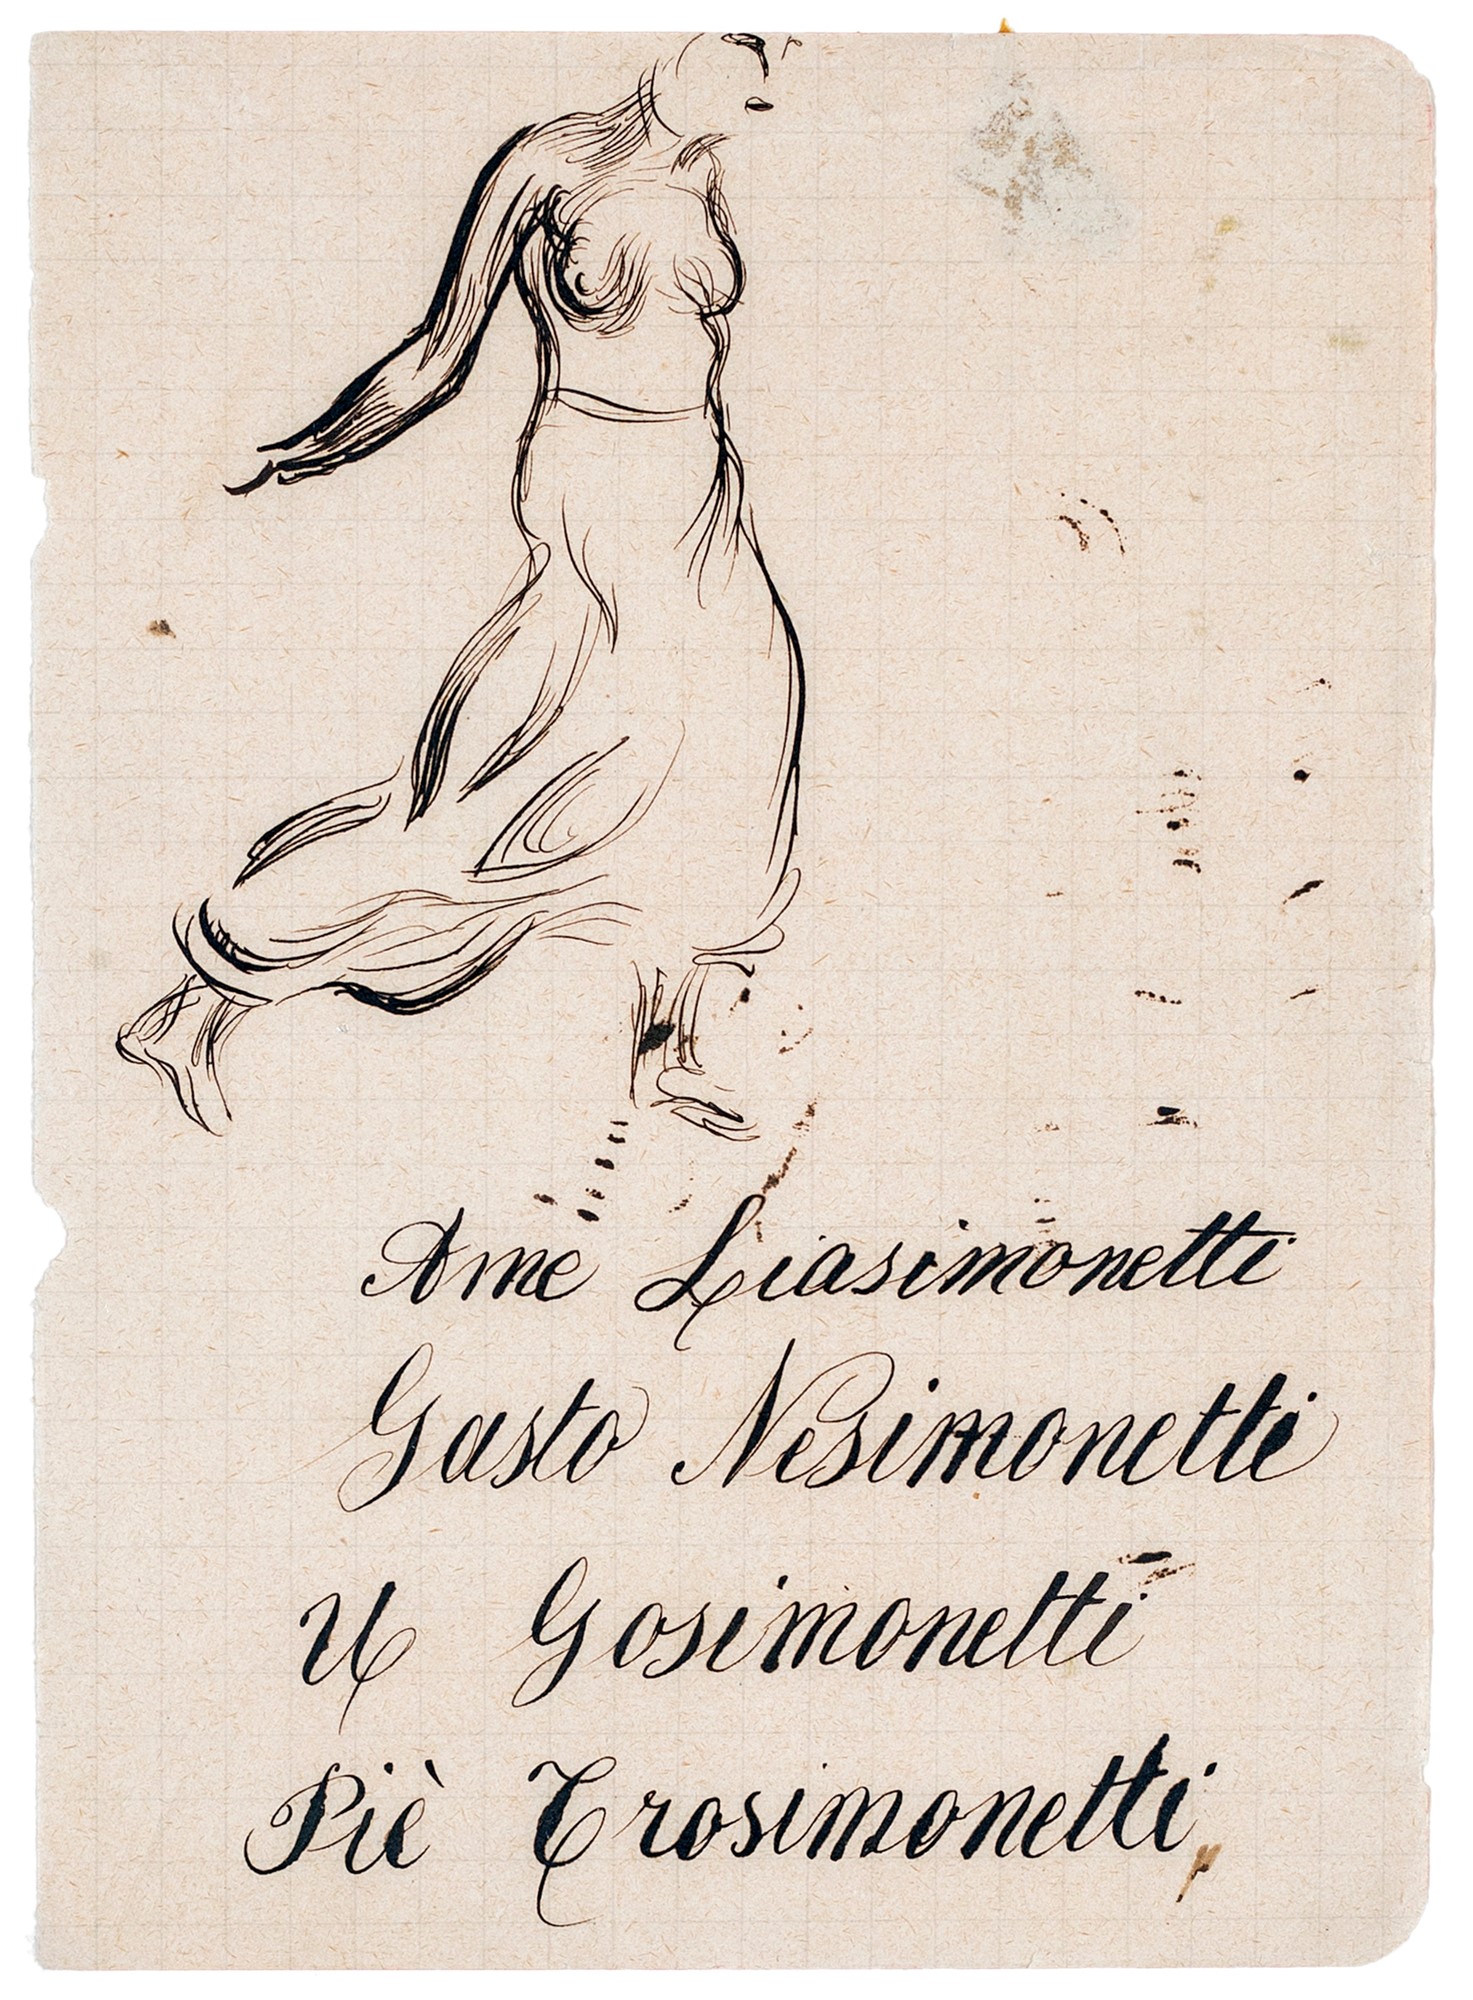 Ame Liasimonetti
Gasto Nesimonetti
U Gosimonetti
Piè Trosimonetti